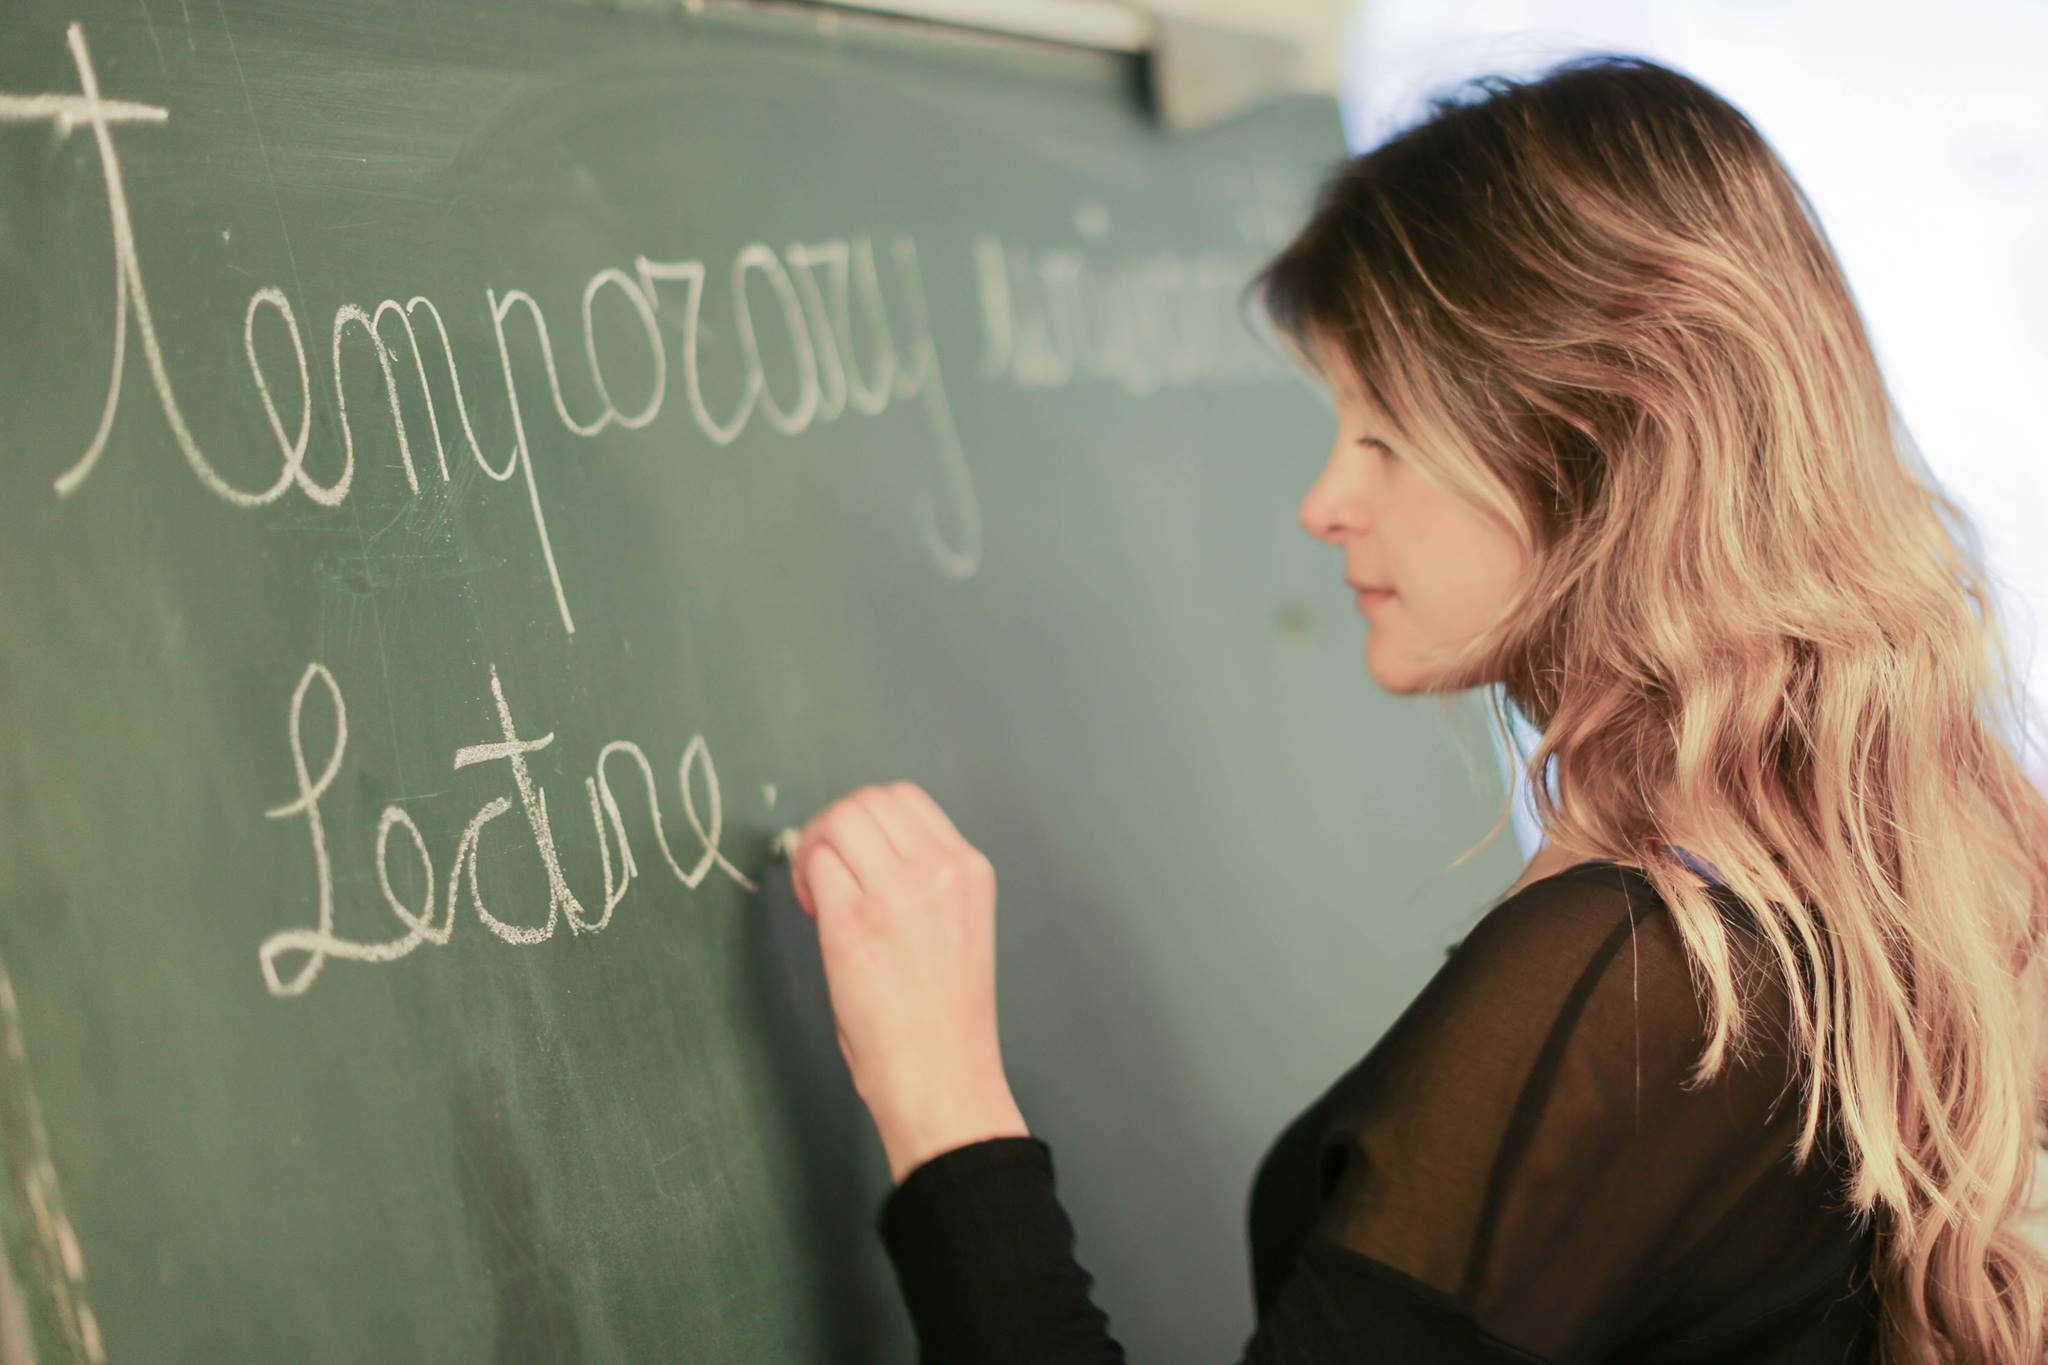 Temporary
Lecture: